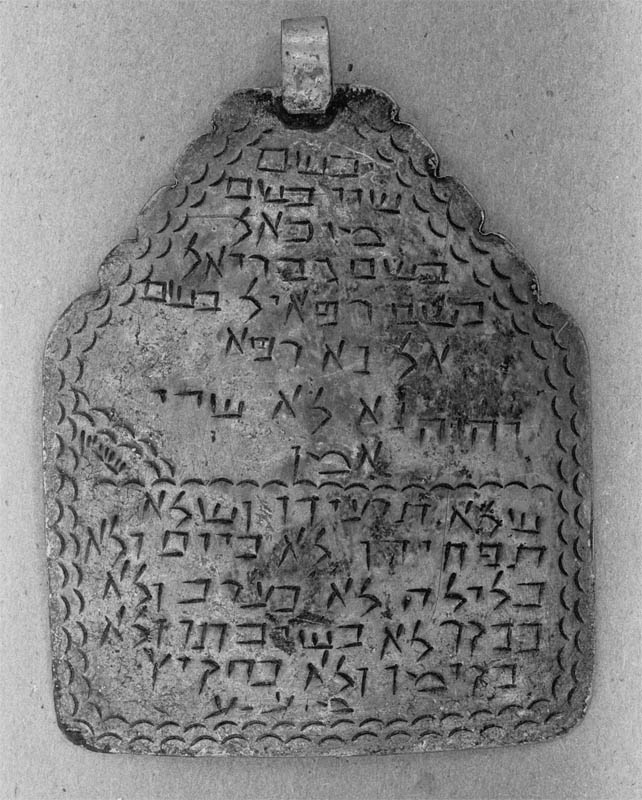 בשם
שדי בשם
מיכאל
בשם גבריאל
בשם רפאיל בשם
אל נא רפא
יהוה נא לא שדי
אמן
שלא תרעידו ושלא
תפחידו לא ביום ולא
בלילה לא בערב ולא
בבקר לא בשכבתו ולא
בקימו ולא בהקיץ